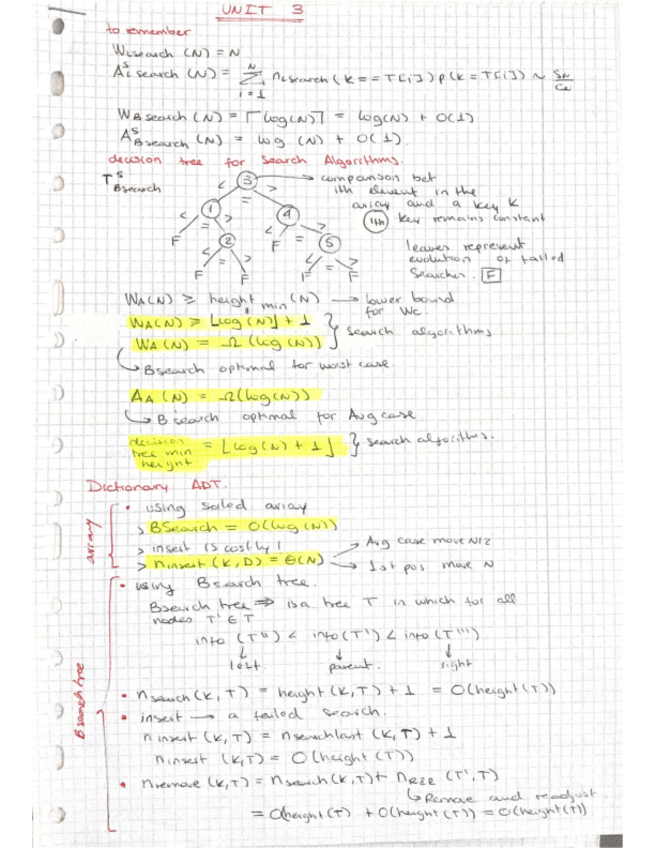 UNIT 3
to remember
WLsearch (N) = N
A^S Lsearch (N) = Σ_{i=1}^{N} nLsearch (K == T[i]) p(K = T[i]) ~ SN/CN
WBsearch (N) = ⌈log(N)⌉ = log(N) + O(1)
A^S Bsearch (N) = log (N) + O(1).
decision tree for Search Algorithms.
T^S Bsearch
3
1
4
2
5
< = >
< = >
< = >
< = >
< = >
F F F F F F
→ comparison bet
ith element in the
array and a key K
ith key remains constant
leaves represent
evolution of failed
Searches. F
WA(N) ≥ height min (N) → lower bound
for WC.
WA(N) ≥ ⌊log(N)⌋ + 1
WA(N) = Ω(log(N))
} search algorithms
↳ Bsearch optimal for worst case.
AA(N) = Ω(log(N))
↳ Bsearch optimal for Avg case
decision
tree min
height
= ⌊log(N) + 1⌋ } search algorithms.
Dictionary ADT.
array
• using sorted array
> BSearch = O(log(N))
> insert is costly!
> ninsert (K,D) = Θ(N)
→ Avg case move N/2
→ 1st pos move N
Bsearch tree
• using Bsearch tree.
Bsearch tree ⇒ is a tree T in which for all
nodes T' ∈ T
info (T'') < info (T') < info (T''')
left parent. right
• nsearch (K,T) = height (K,T) + 1 = O(height(T))
• insert → a failed search.
ninsert (K,T) = nsearchlast (K,T) + 1
ninsert (K,T) = O(height(T))
• nremove (K,T) = nsearch (K,T) + nR&R (T',T)
↳ Remove and readjust.
= O(height(T)) + O(height(T)) = O(height(T))